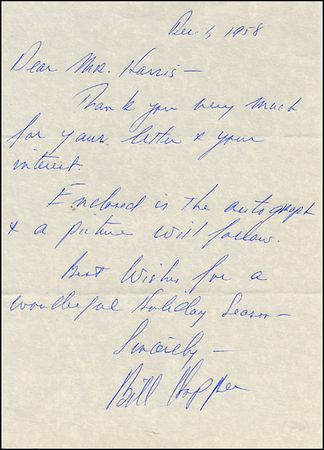 Dec. 1, 1958
Dear Mrs. Harris –
Thank you very much
for your letter & your
interest.
Enclosed is the autograph
& a picture will follow.
Best Wishes for a
wonderful Holiday Season –
Sincerely –
Bill Hopper